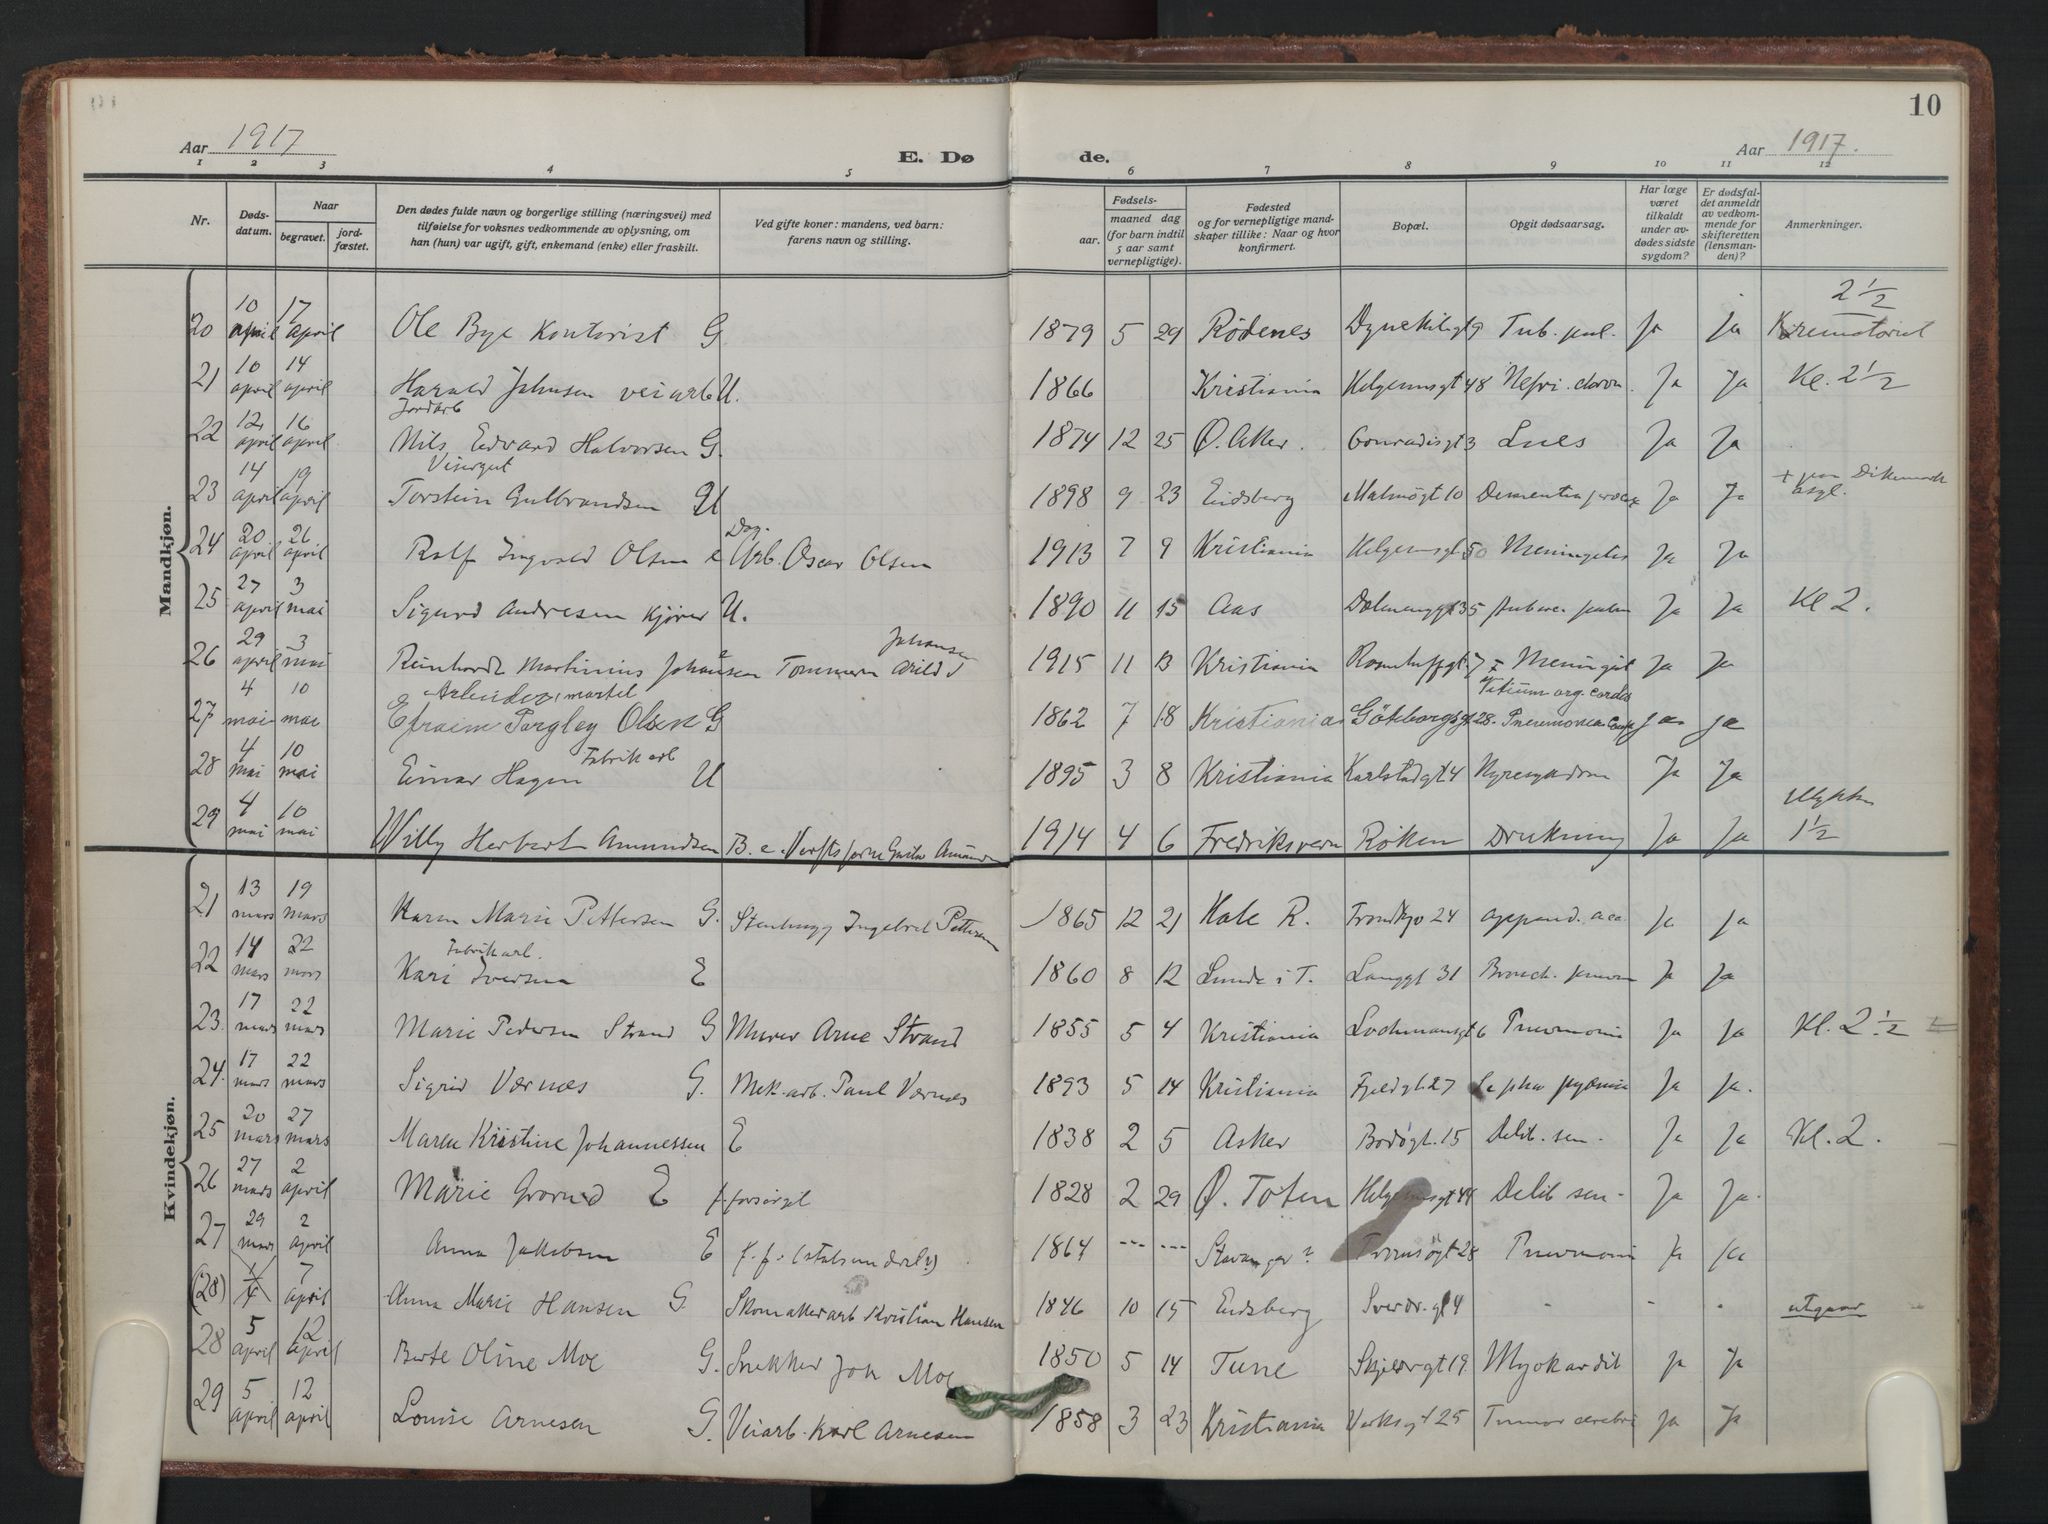 10
Aar 1917
E. Dø
de.
Aar 1917.
1 2 3 4 5 6 7 8 9 10 11 12
Nr.
Døds-
datum.
Naar
begravet.
jord-
fæstet.
Den dødes fulde navn og borgerlige stilling (næringsvei) med
tilføielse for voksnes vedkommende av oplysning, om
han (hun) var ugift, gift, enkemand (enke) eller fraskilt.
Ved gifte koner: mandens, ved barn:
farens navn og stilling.
Fødsels-
aar.
maaned dag
(for barn indtil
5 aar samt
vernepligtige).
Fødested
og for vernepligtige mand-
skaper tillike: Naar og hvor
konfirmert.
Bopæl.
Opgit dødsaarsag.
Har læge
været
tilkaldt
under av-
dødes sidste
sygdom?
Er dødsfal-
det anmeldt
av vedkom-
mende for
skifteretten
(lensman-
den)?
Anmerkninger.
Mandkjøn.
20 10 april 17 april Ole Bye Kontorist G 1879 5 29 Rødenes Tub. pul. Ja Ja 2 1/2 Krematoriet
21 10 april 14 april Harald Johnsen veiarb U. 1866 Kristiania Helgesensgt 48 Ja Ja Kl. 2 1/2
Jordarb
22 12 april 16 april Nils Edvard Halvorsen G. 1874 12 25 Ø. Aker. Conradisgt 3 Lues Ja Ja
Visergut
23 14 april 19 april Torstein Gulbrandsen U 1898 9 23 Eidsberg Malmøgt 10 Dementia Ja Ja + paa Dikemark asyl.
24 20 april 26 april Rolf Ingvald Olsen e Dag. Arb. Oscar Olsen 1913 7 9 Kristiania Helgesensgt 50 Meningitis Ja Ja
25 27 april 3 mai Sigurd Andresen Kjører U. 1890 11 15 Aas Ja Ja Kl 2.
26 29 april 3 mai Reinhardt Martinius Johansen e Tømmerm Arild Johansen 1915 11 13 Kristiania Meningit Ja Ja
Arbeider
27 4 mai 10 mai Efraim Olsen G 1862 7 18 Kristiania Göteborggt 28. Vitium org. cordis Pneumonia ja ja
28 4 mai 10 mai Einar Hagen Fabrikarb U 1895 3 8 Kristiania Karlstadgt 4 Nyresygdom Ja Ja
29 4 mai 10 mai Willy Herbert Amundsen B. e. 1914 4 6 Fredriksvern Røken Drukning Ja Ja Ulykke 1 1/2
Kvindekjøn.
21 13 mars 19 mars Karen Marie Pettersen G. Stenhugg Ingebret Pettersen 1865 12 21 Hole R. 24 Append. Ja Ja
Fabrikarb.
22 14 mars 22 mars Kari Iversen E 1860 8 12 Lunde i T. Langgt 31 Bronch. pneum Ja Ja
23. 17 mars 22 mars Marie Pedersen Strand G Murer Arne Strand 1855 5 4 Kristiania Lochmannsgt 6 Pneumoni Ja Ja Kl. 2 1/2
24. 17 mars 22 mars Sigrid Værnes G. Mek. arb. Paul Værnes 1893 5 14 Kristiania Fjeldgt. 27 Ja Ja.
25 20 mars 27 mars Maren Kristine Johannessen E 1838 2 5 Asker Bodøgt. 15 Debil. sen. Ja Ja Kl. 2.
26 27 mars 2 april Marie E f. forsørget 1828 2 29 Ø. Toten Helgesensgt 44 Debil sen - Ja Ja.
27 29 mars 2 april Anna Jakobsen E 1864 --- --- Stavanger? Tromsøgt 28 Pneumoni Ja Ja
(28) 1/4 7 april Anna Marie Hansen G. Skomakerarb Kristian Hansen 1846 10 15 Eidsberg Sverdr. gt 4 - - - utgaar
28 5 april 12 april Berte Oline Moe G. Snekker Joh Moe 1850 5 14 Tune Myokardit Ja Ja
29 5 april 12 april Louise Arnesen G. Veiarb. Karl Arnesen 1858 3 23 Kristiania Verksgt 25 Tumor cerebri Ja Ja